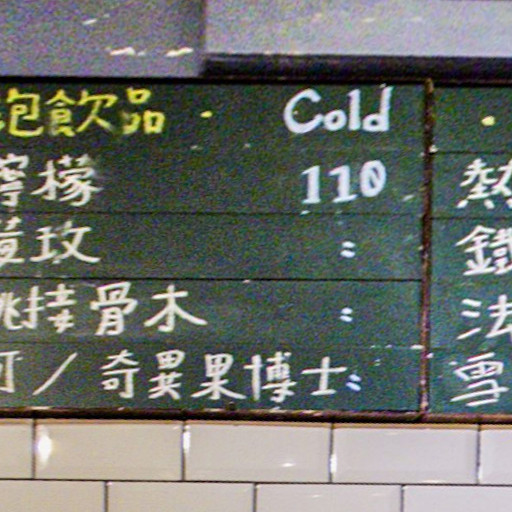 泡飲品 · Cold
檸檬 110
黃玫 :
桃接骨木 :
可 / 奇異果博士 :
·
熱
鐵
法
雪